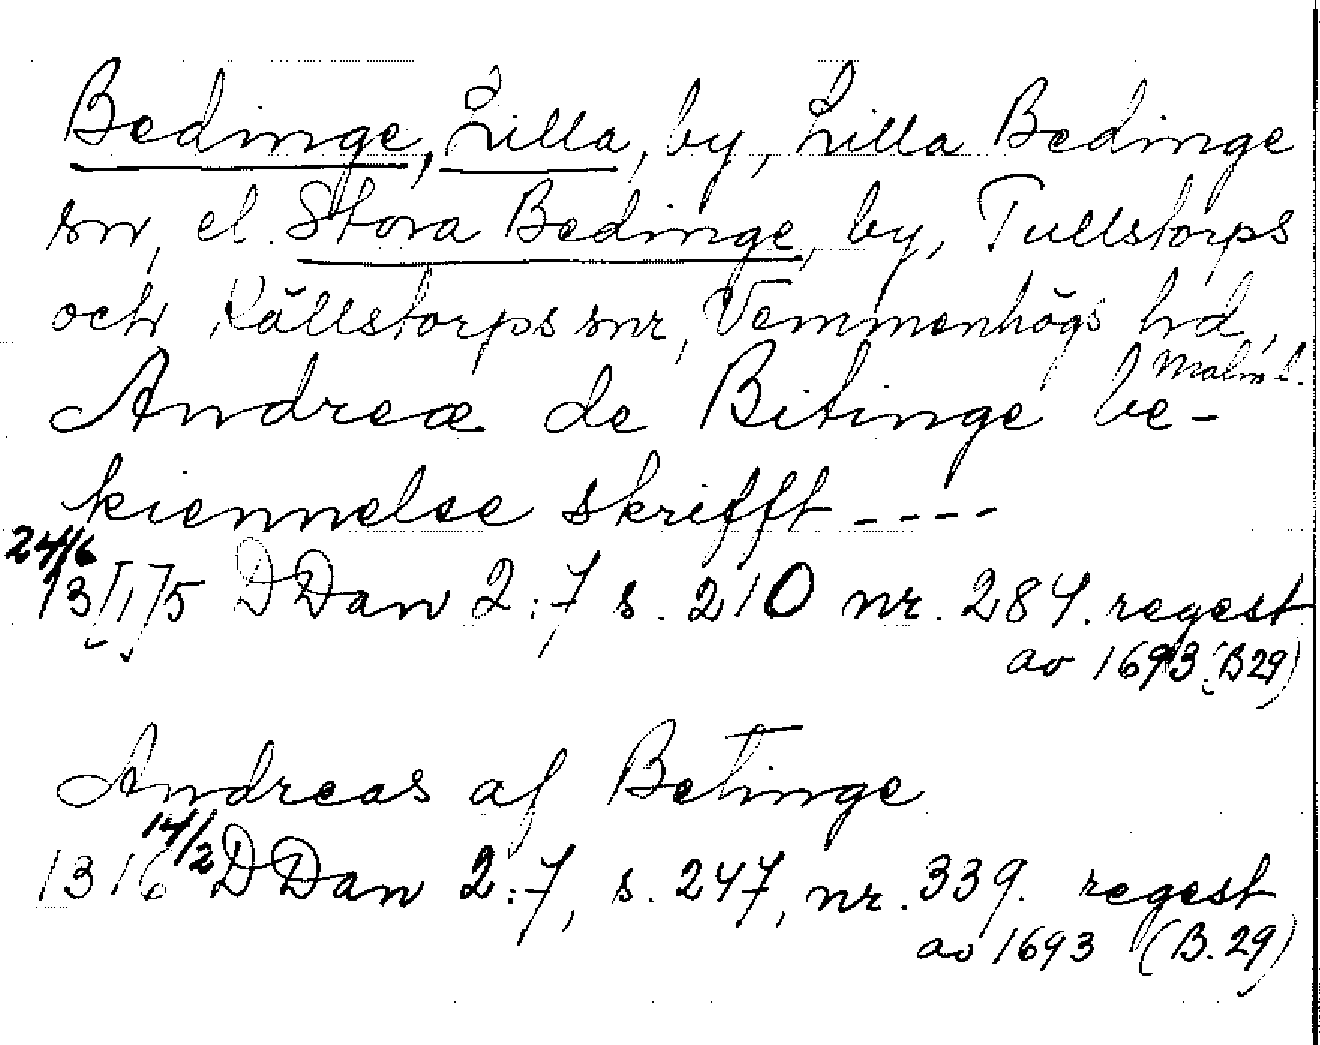 Bedinge, Lilla, by, Lilla Bedinge
sn, el. Stora Bedinge, by, Tullstorps
och Källstorps snr, Vemmenhögs hd,
Malm. l.
Andreæ de Bitinge be-
kiennelse skrifft ----
24/6
13[1]5 DDan 2:7 s. 210 nr. 284. regest
av 1693 (B29)
Andreas af Betinge
1316 14/2 DDan 2:7, s. 247, nr. 339. regest
av 1693 (B. 29)